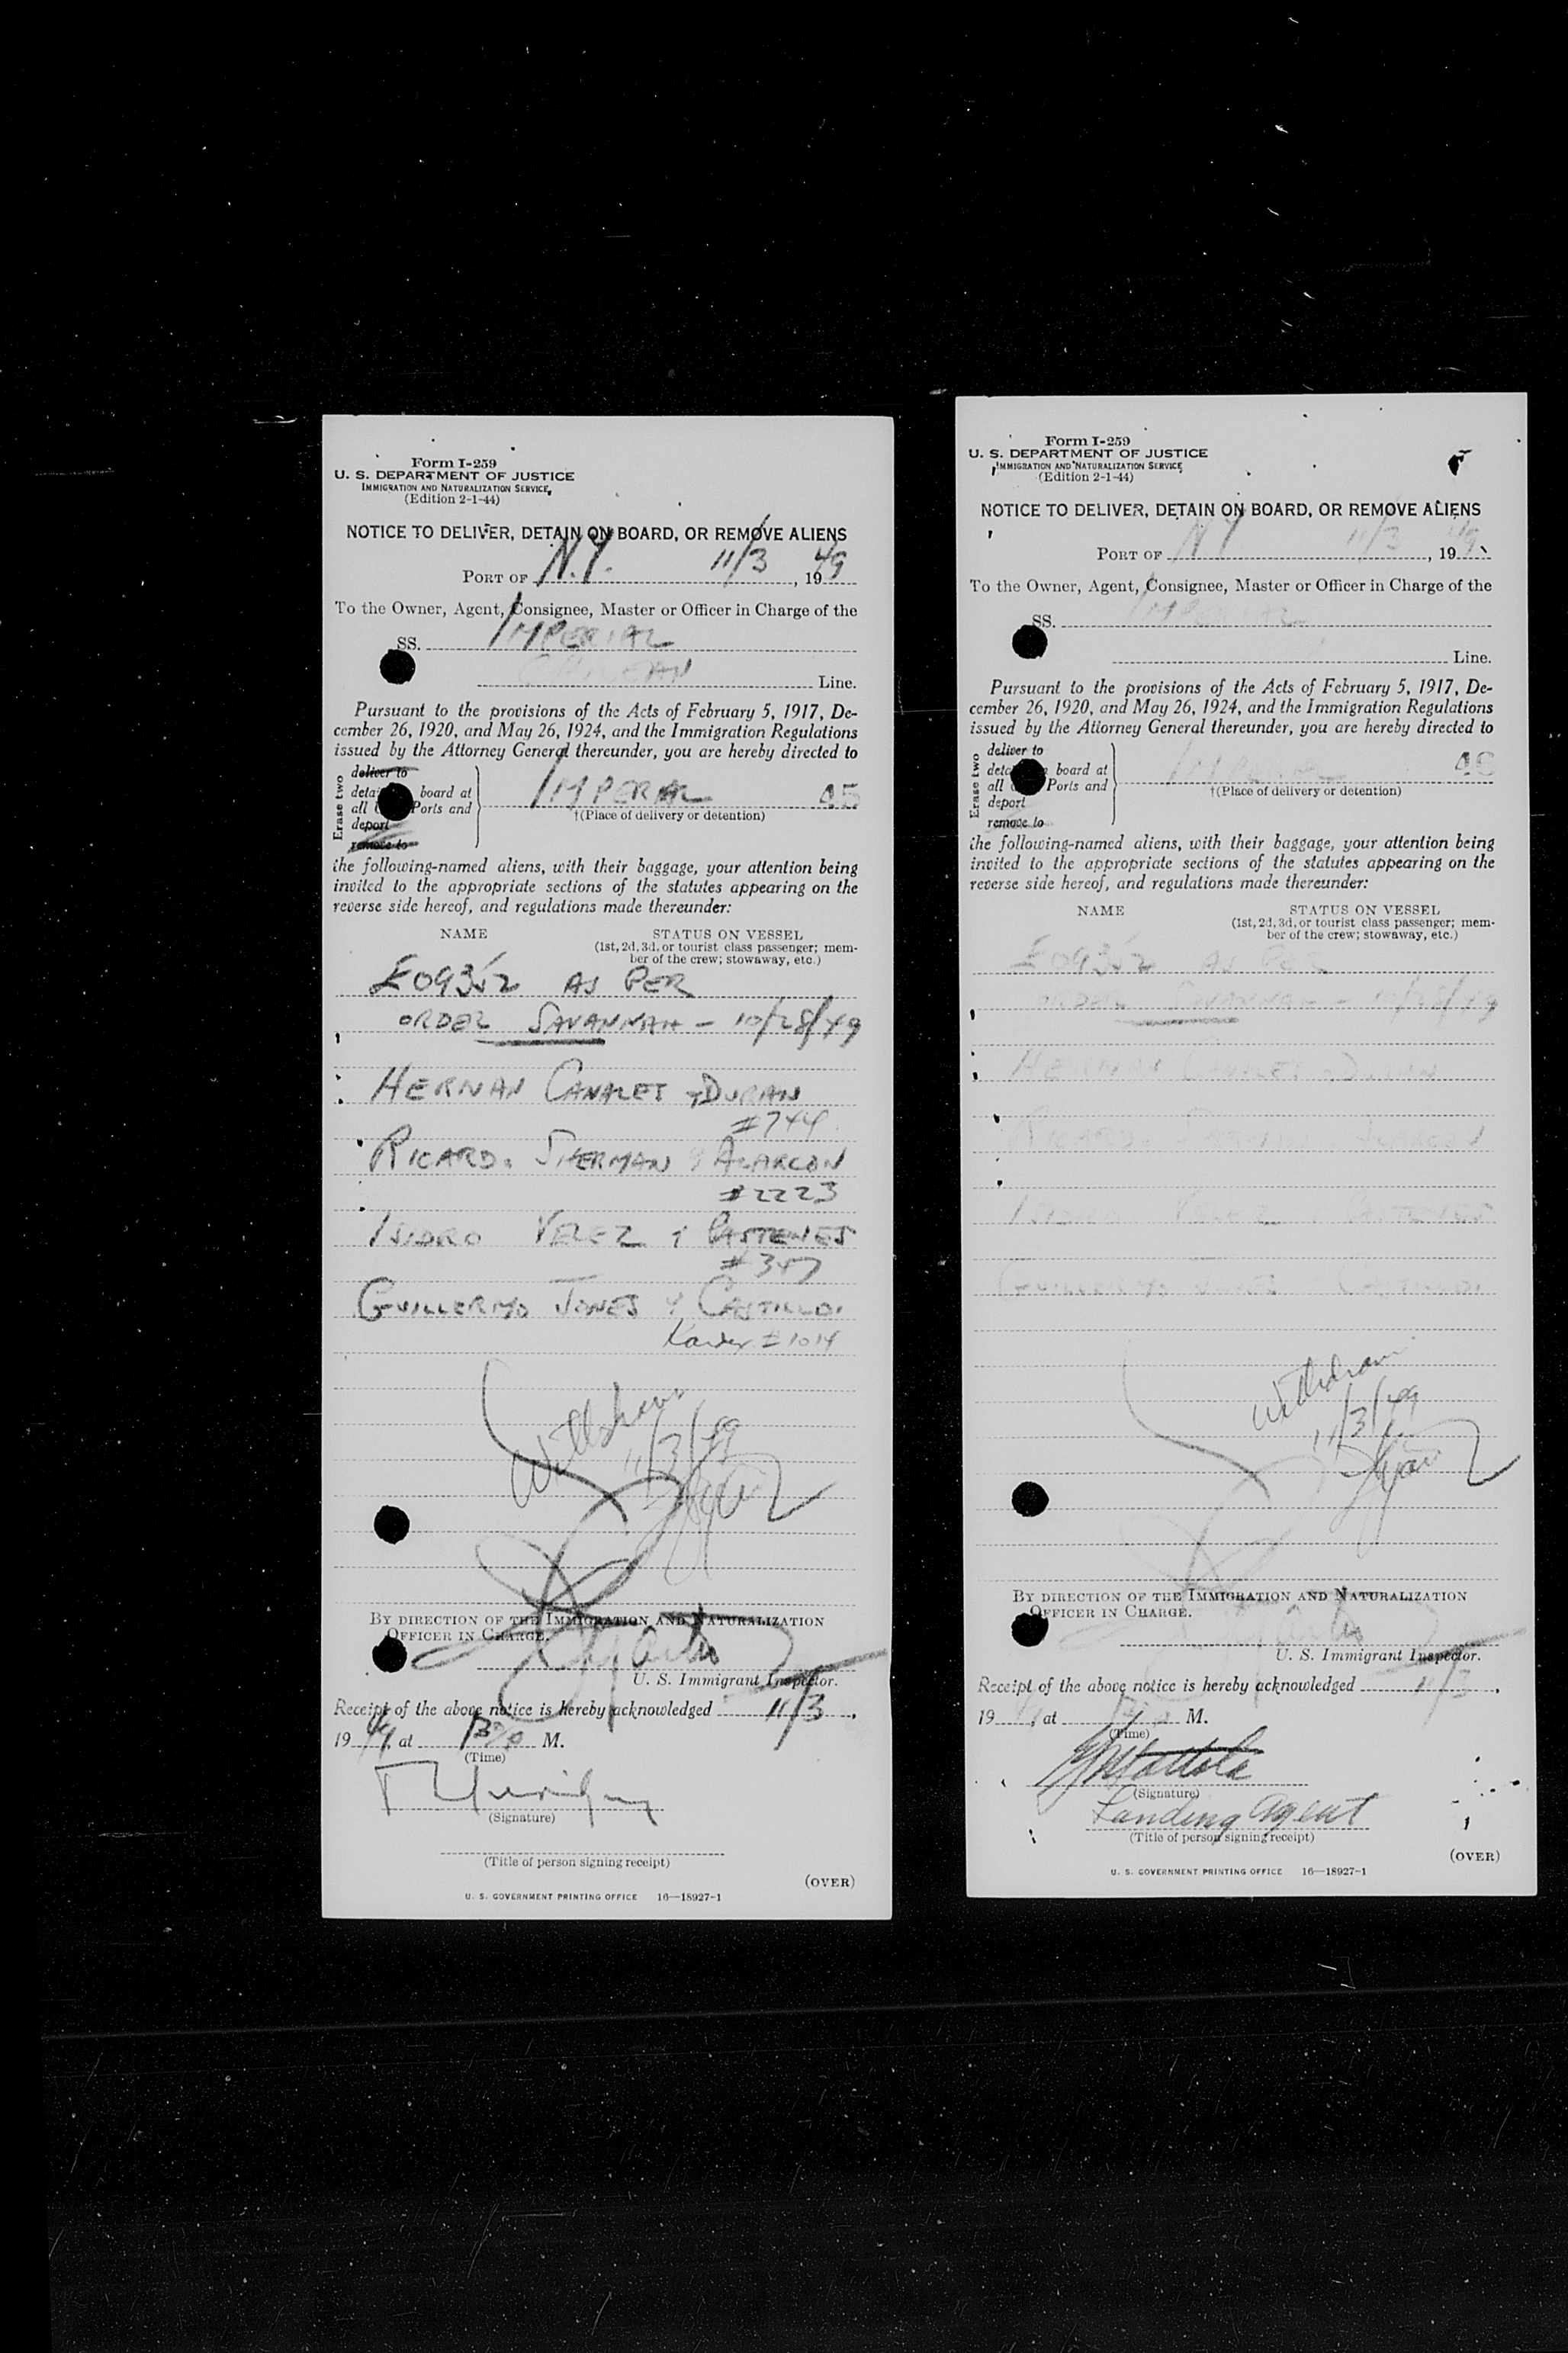 Form I-259
U. S. DEPARTMENT OF JUSTICE
IMMIGRATION AND NATURALIZATION SERVICE
(Edition 2-1-44)
NOTICE TO DELIVER, DETAIN ON BOARD, OR REMOVE ALIENS
PORT OF N.Y. 11/3, 1949
To the Owner, Agent, Consignee, Master or Officer in Charge of the
SS. IMPERIAL
Line.
Pursuant to the provisions of the Acts of February 5, 1917, De-
cember 26, 1920, and May 26, 1924, and the Immigration Regulations
issued by the Attorney General thereunder, you are hereby directed to
Erase two
deliver to
board at
all Ports and
deport
remove to
IMPERIAL
†(Place of delivery or detention)
the following-named aliens, with their baggage, your attention being
invited to the appropriate sections of the statutes appearing on the
reverse side hereof, and regulations made thereunder:
NAME STATUS ON VESSEL
(1st, 2d, 3d, or tourist class passenger; mem-
ber of the crew; stowaway, etc.)
E09352 AS PER
ORDER SAVANNAH - 10/28/49
HERNAN CANALES Y DURAN
#744
RICARDO SHERMAN Y ALARCON
#2223
ISIDRO VELEZ Y PASTENES
#347
GUILLERMO JONES Y CASTILLO
#1014
Withdrawn
11/3/49
BY DIRECTION OF THE IMMIGRATION AND NATURALIZATION
OFFICER IN CHARGE.
U. S. Immigrant Inspector.
Receipt of the above notice is hereby acknowledged 11/3,
1949, at M.
(Time)
(Signature)
(Title of person signing receipt)
(OVER)
U. S. GOVERNMENT PRINTING OFFICE 16—18927-1
Form I-259
U. S. DEPARTMENT OF JUSTICE
IMMIGRATION AND NATURALIZATION SERVICE
(Edition 2-1-44)
NOTICE TO DELIVER, DETAIN ON BOARD, OR REMOVE ALIENS
PORT OF NY 11/3, 1949
To the Owner, Agent, Consignee, Master or Officer in Charge of the
SS. IMPERIAL
Line.
Pursuant to the provisions of the Acts of February 5, 1917, De-
cember 26, 1920, and May 26, 1924, and the Immigration Regulations
issued by the Attorney General thereunder, you are hereby directed to
Erase two
deliver to
board at
all Ports and
deport
remove to
IMPERIAL
†(Place of delivery or detention)
the following-named aliens, with their baggage, your attention being
invited to the appropriate sections of the statutes appearing on the
reverse side hereof, and regulations made thereunder:
NAME STATUS ON VESSEL
(1st, 2d, 3d, or tourist class passenger; mem-
ber of the crew; stowaway, etc.)
E09352 AS PER
ORDER SAVANNAH - 10/28/49
HERNAN CANALES Y DURAN
RICARDO SHERMAN ALARCON
ISIDRO VELEZ PASTENES
GUILLERMO JONES CASTILLO
Withdrawn
11/3/49
BY DIRECTION OF THE IMMIGRATION AND NATURALIZATION
OFFICER IN CHARGE.
U. S. Immigrant Inspector.
Receipt of the above notice is hereby acknowledged 11/3,
19, at M.
(Time)
(Signature)
Landing Agent
(Title of person signing receipt)
(OVER)
U. S. GOVERNMENT PRINTING OFFICE 16—18927-1